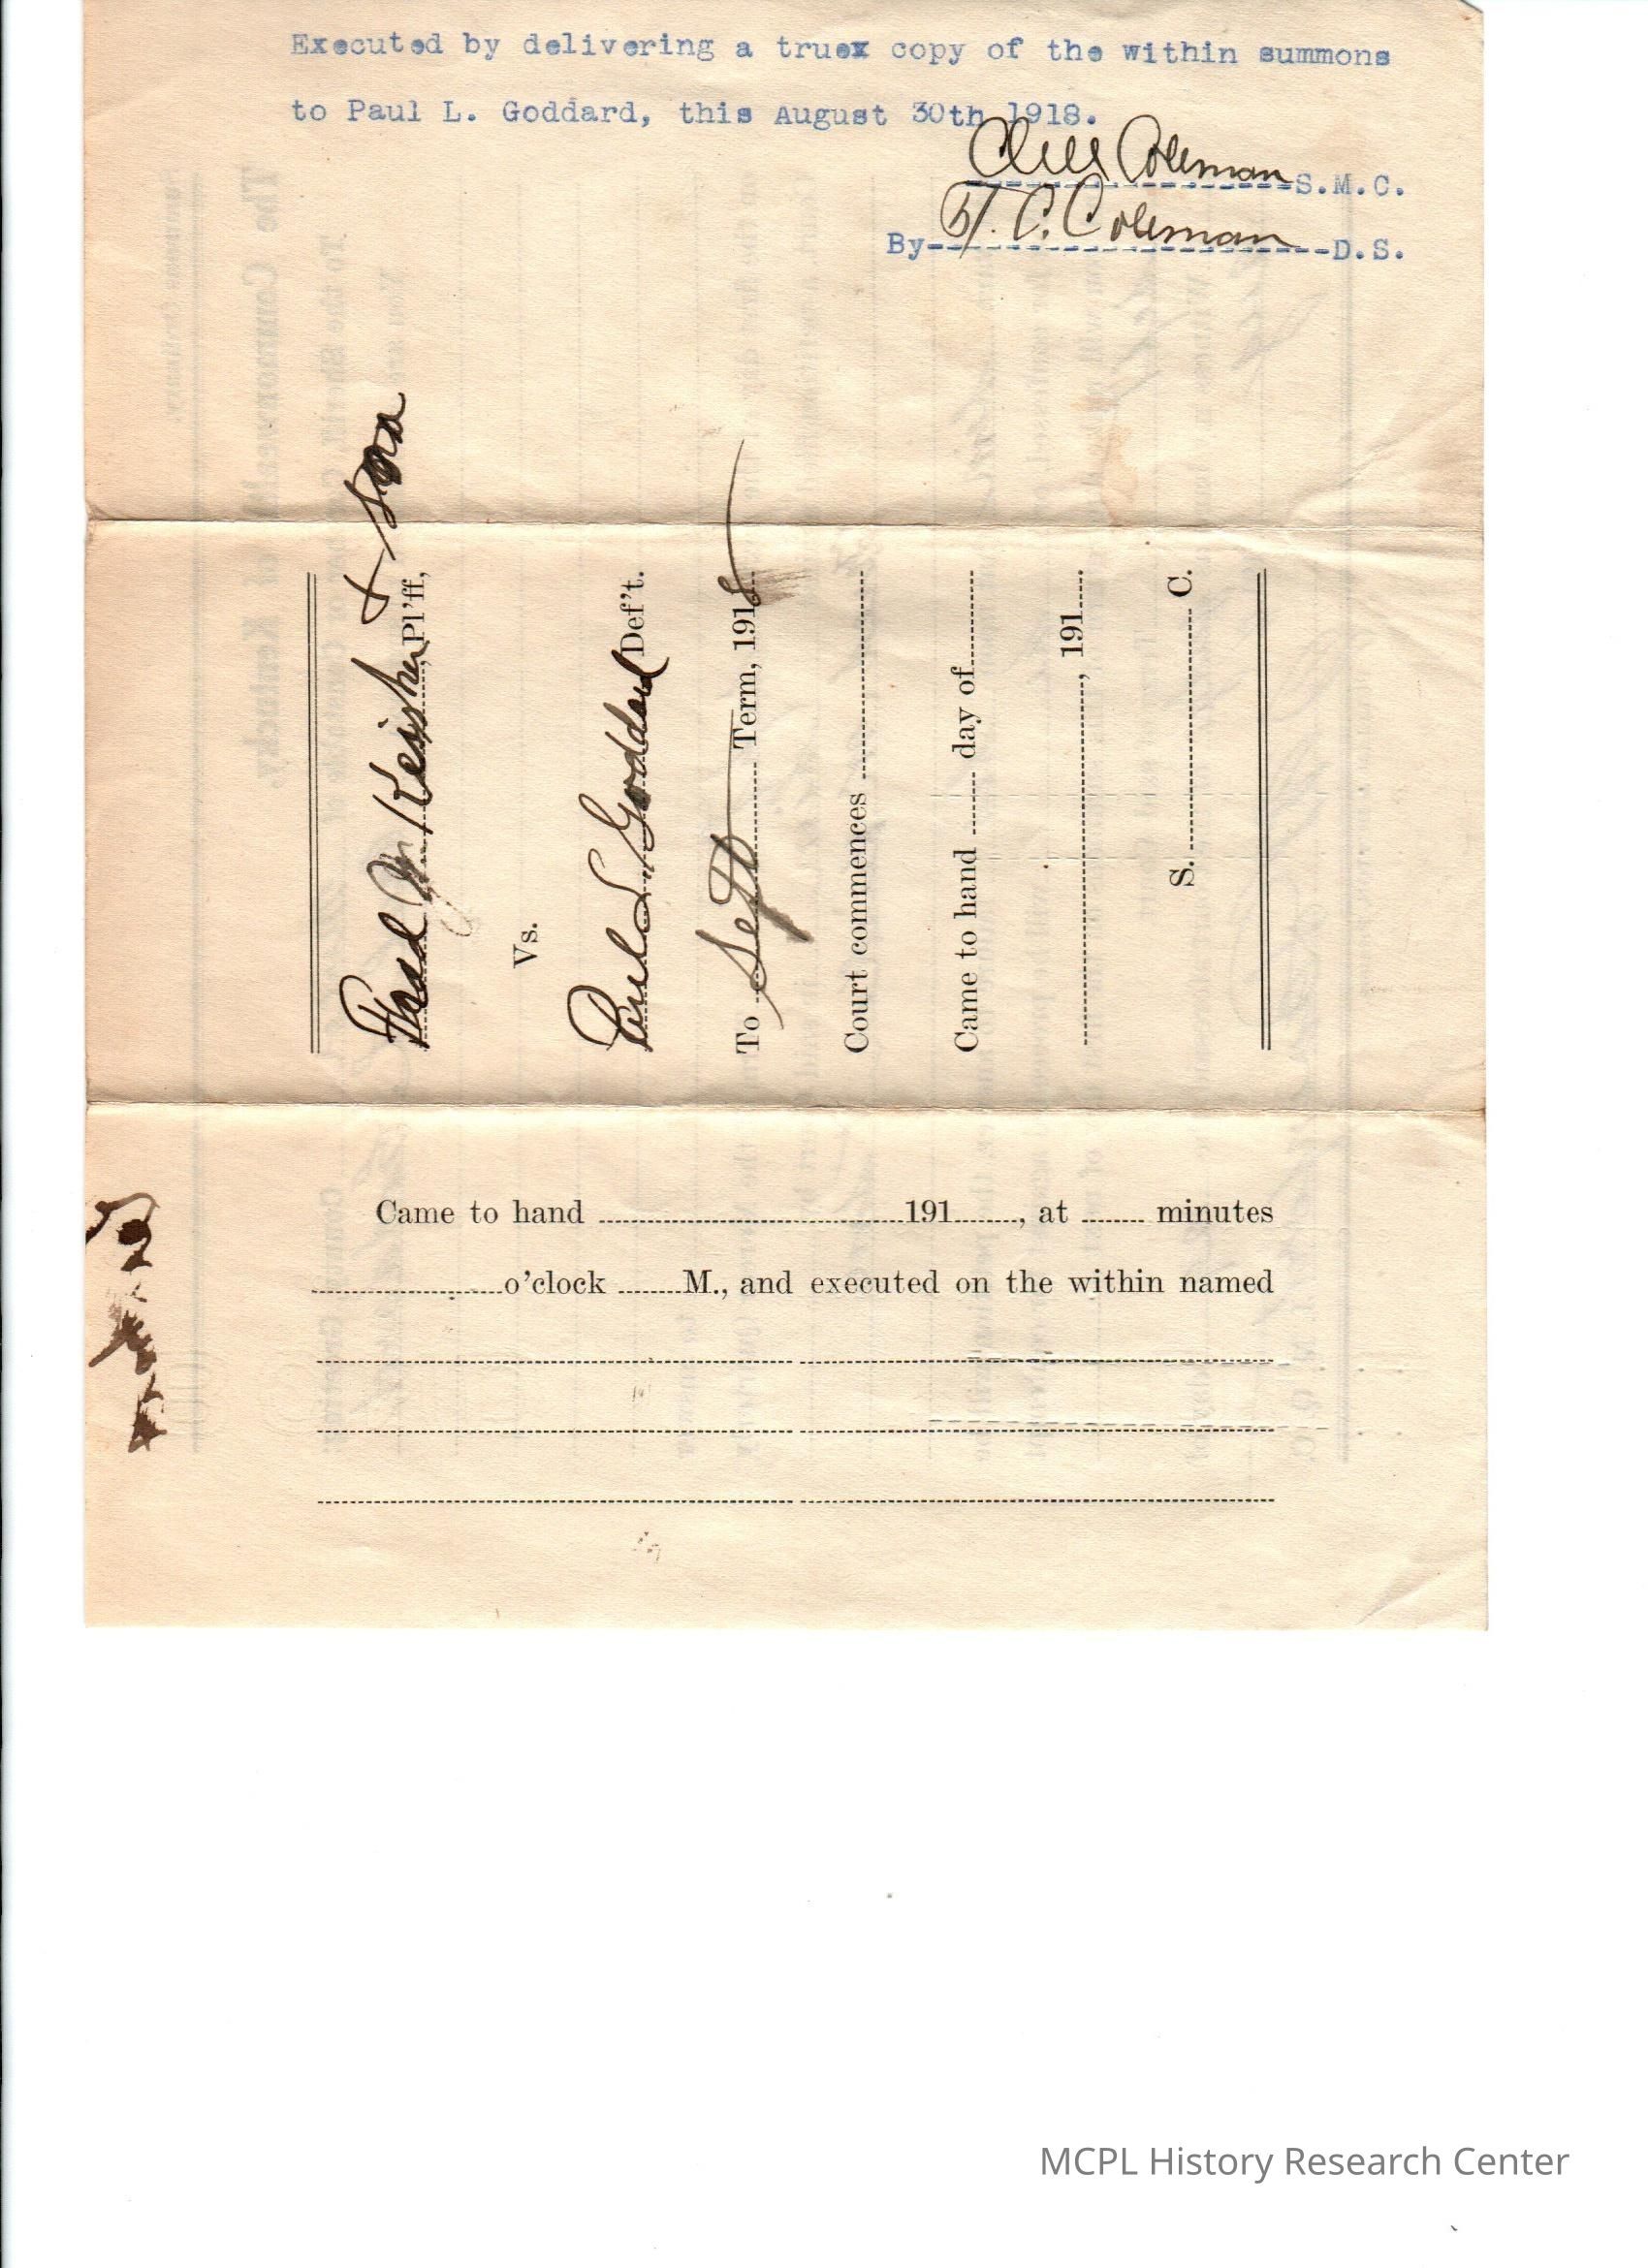 Executed by delivering a truex copy of the within summons
to Paul L. Goddard, this August 30th 1918.
Coleman S.M.C.
By T. C. Coleman D.S.
& Son
Pl'ff,
Vs.
Paul L. Goddard Def't.
To Sept Term, 1918
Court commences
Came to hand day of
, 191
S. C.
Came to hand 191 , at minutes
o'clock M., and executed on the within named
MCPL History Research Center